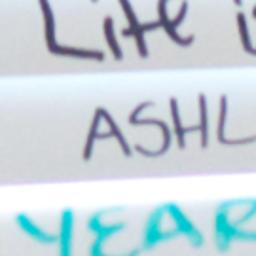 Life i
ASHL
YEAR